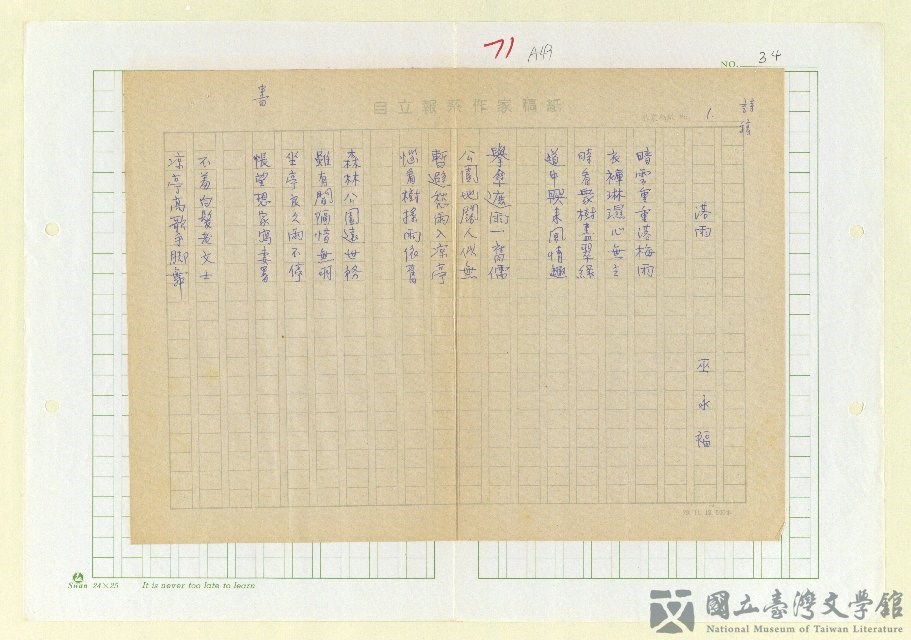 71 A43
NO. 34
自立報系作家稿紙
詩稿
1.
書
落雨
巫永福
暗雲重重落梅雨
衣褲淋濕心無主
時看眾樹盡翠綠
道中興來回情趣
舉傘遮雨一舊儒
公園地闊人似無
暫避愁雨入凉亭
惱看樹搖雨依舊
森林公園遠世俗
雖有閒隔惜無朋
坐亭良久雨不停
悵望想家
不羞白髮老文士
凉亭高歌手腳舞
Swan 24×25 It is never too late to learn
國立臺灣文學館
National Museum of Taiwan Literature